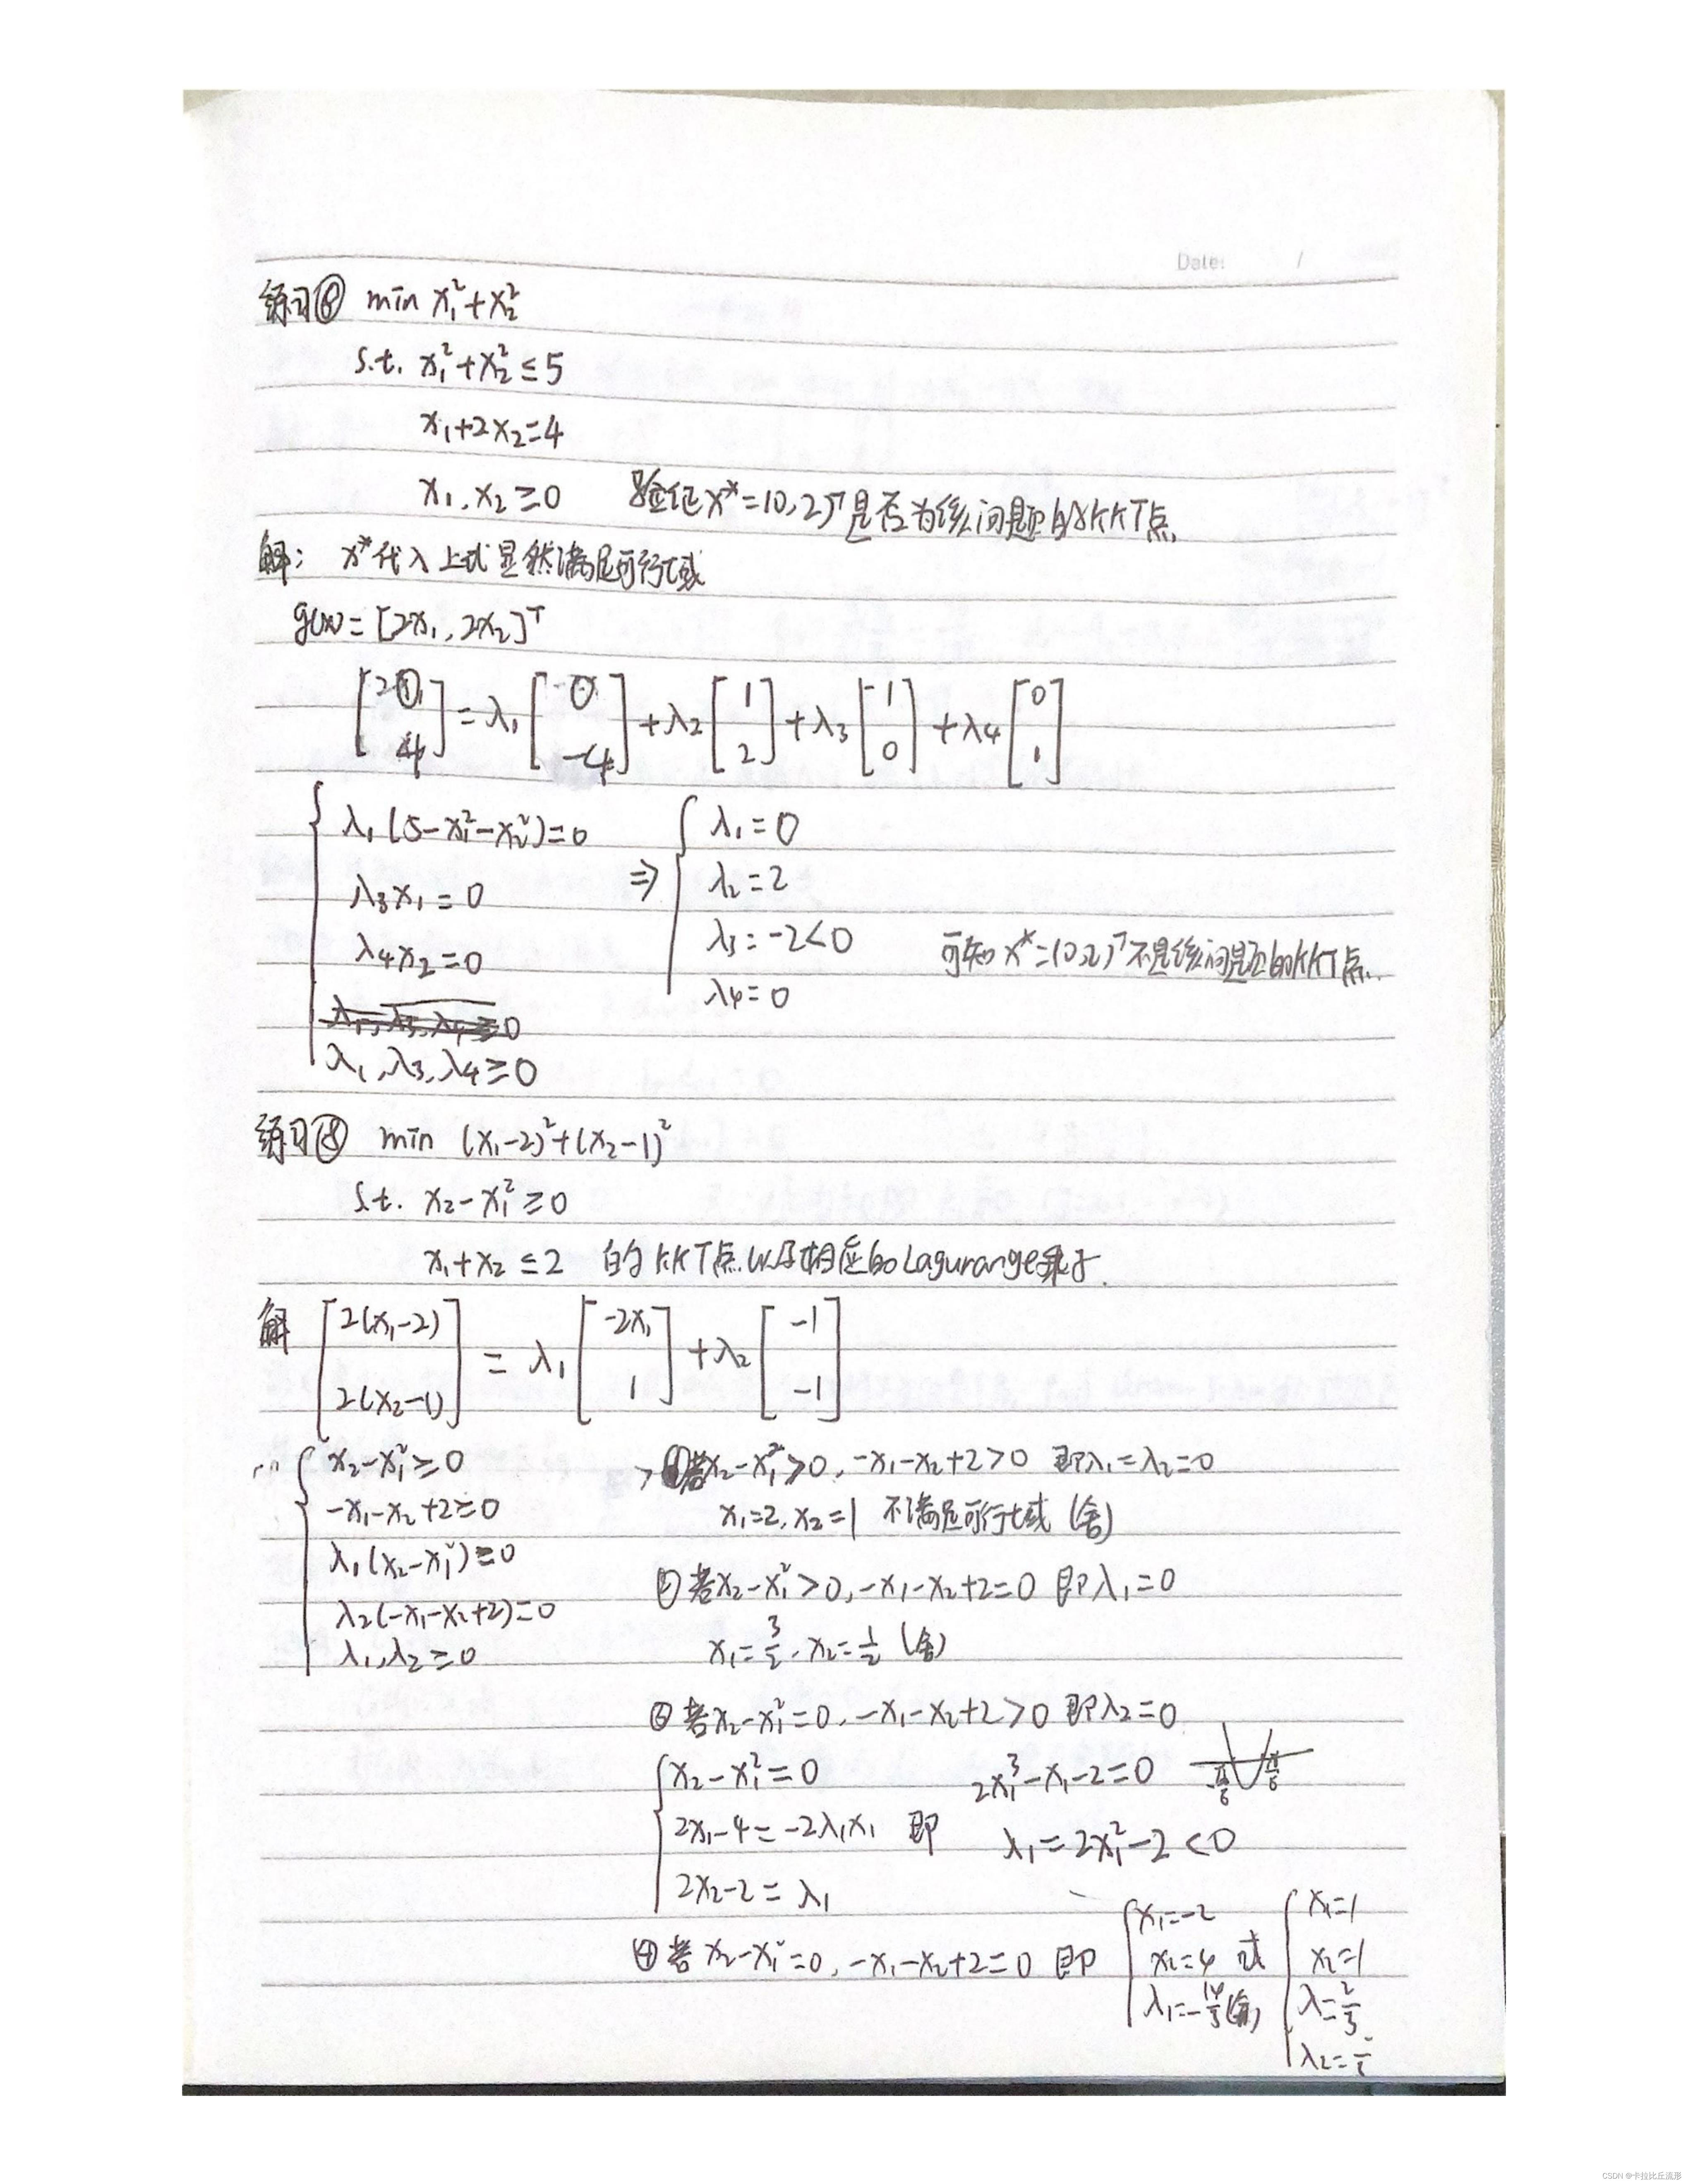 Date: /
练习⑧ min x₁²+x₂²
s.t. x₁²+x₂²≤5
x₁+2x₂=4
x₁,x₂≥0 验证x*=(0,2)ᵀ是否为该问题的KKT点
解: x*代入上式显然满足可行域
g(x)=[2x₁,2x₂]ᵀ
[0 4]=λ₁[0 -4]+λ₂[1 2]+λ₃[1 0]+λ₄[0 1]
λ₁(5-x₁²-x₂²)=0
λ₃x₁=0
λ₄x₂=0
λ₁,λ₃,λ₄≥0
⇒ λ₁=0
λ₂=2
λ₃=-2<0 可知x*=(0,2)ᵀ不是该问题的KKT点.
λ₄=0
练习⑱ min (x₁-2)²+(x₂-1)²
s.t. x₂-x₁²≥0
x₁+x₂≤2 的KKT点以及相应的Lagurange乘子.
解 [2(x₁-2) 2(x₂-1)]=λ₁[-2x₁ 1]+λ₂[-1 -1]
x₂-x₁²≥0
-x₁-x₂+2≥0
λ₁(x₂-x₁²)=0
λ₂(-x₁-x₂+2)=0
λ₁,λ₂≥0
①若x₂-x₁²>0,-x₁-x₂+2>0 即λ₁=λ₂=0
x₁=2,x₂=1 不满足可行域(舍)
②若x₂-x₁²>0,-x₁-x₂+2=0 即λ₁=0
x₁=3/2,x₂=1/2(舍)
③若x₂-x₁²=0,-x₁-x₂+2>0 即λ₂=0
x₂-x₁²=0
2x₁-4=-2λ₁x₁
2x₂-2=λ₁
即 2x₁³-x₁-2=0
λ₁=2x₁²-2<0
④若x₂-x₁²=0,-x₁-x₂+2=0 即
x₁=-2
x₂=4
λ₁=-14/3(舍)
或
x₁=1
x₂=1
λ=2/3
λ₂=
CSDN @卡拉比丘流形